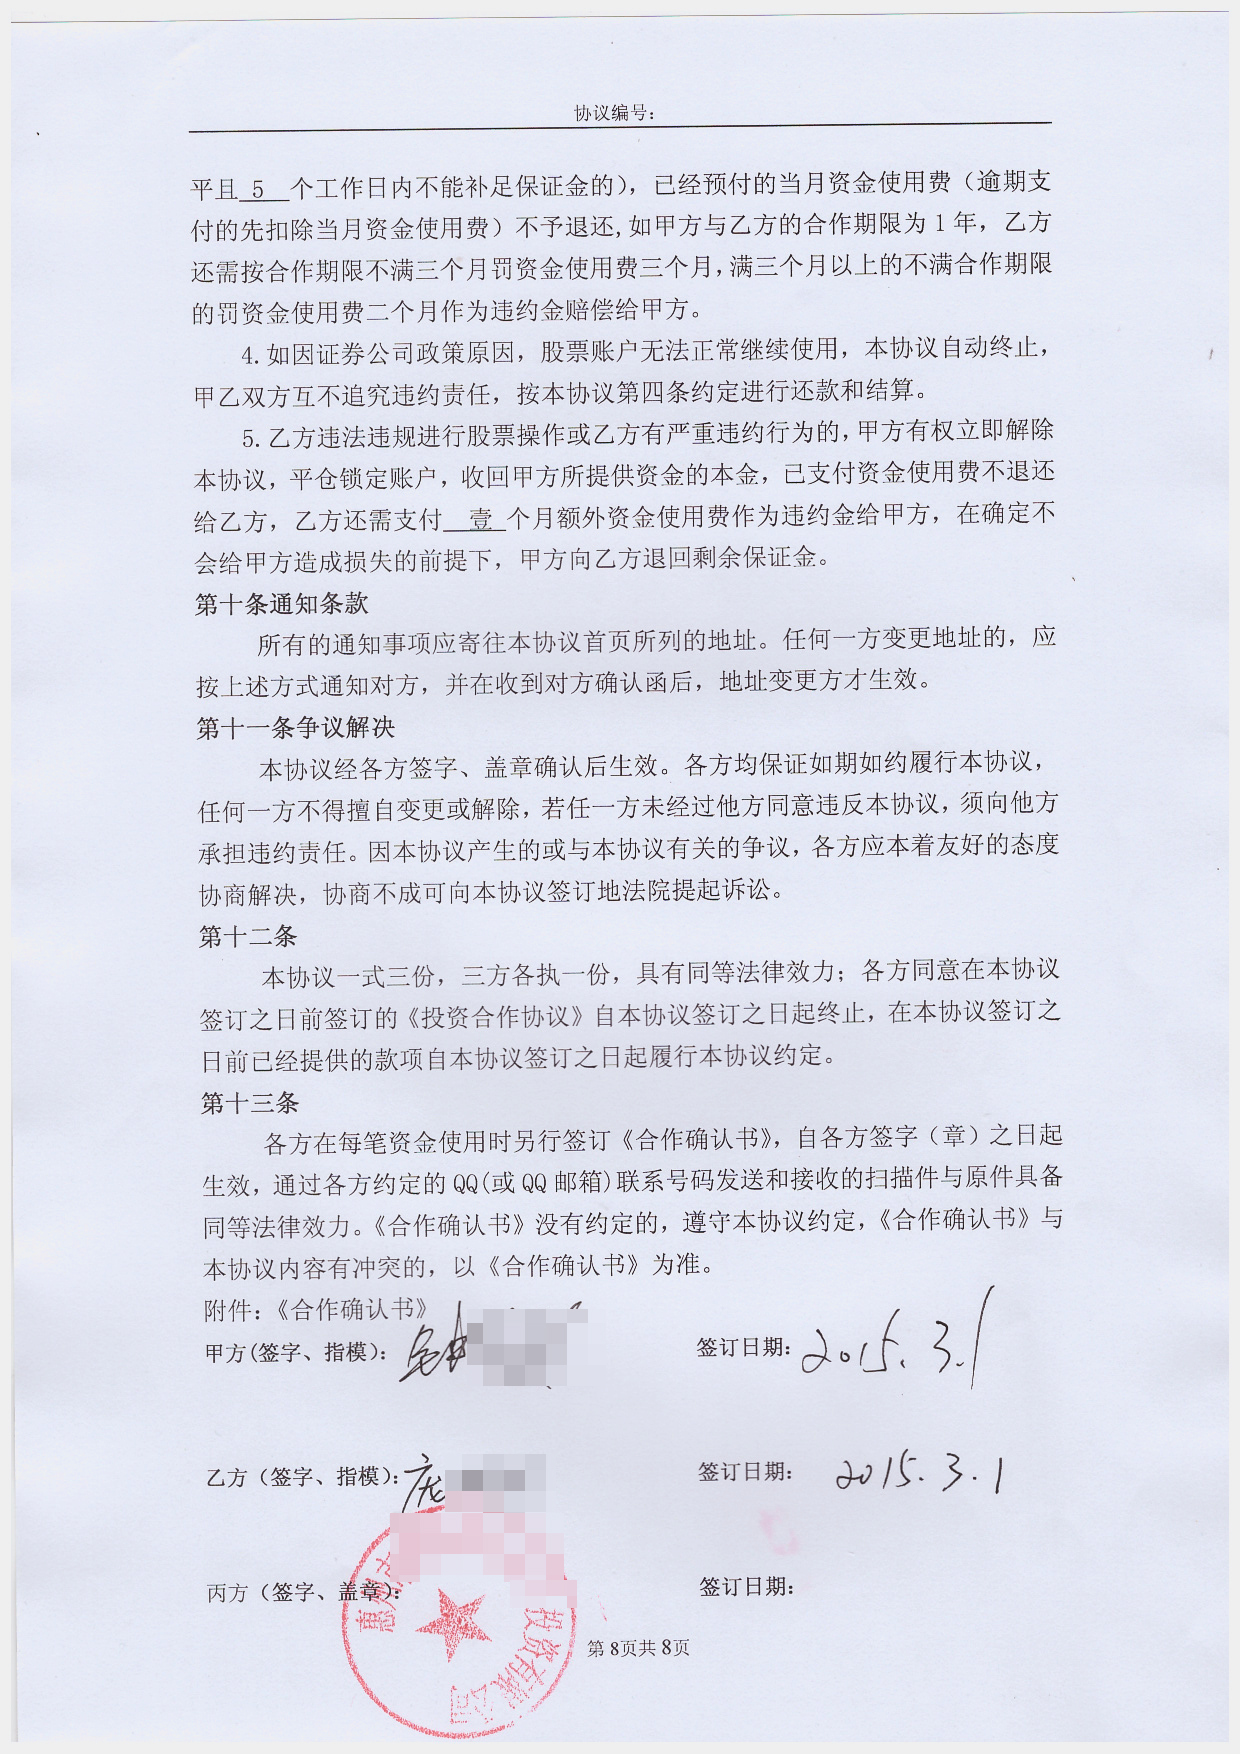 协议编号：
平且 5 个工作日内不能补足保证金的），已经预付的当月资金使用费（逾期支
付的先扣除当月资金使用费）不予退还,如甲方与乙方的合作期限为 1 年，乙方
还需按合作期限不满三个月罚资金使用费三个月,满三个月以上的不满合作期限
的罚资金使用费二个月作为违约金赔偿给甲方。
4.如因证券公司政策原因，股票账户无法正常继续使用，本协议自动终止，
甲乙双方互不追究违约责任，按本协议第四条约定进行还款和结算。
5.乙方违法违规进行股票操作或乙方有严重违约行为的,甲方有权立即解除
本协议，平仓锁定账户，收回甲方所提供资金的本金，已支付资金使用费不退还
给乙方，乙方还需支付 壹 个月额外资金使用费作为违约金给甲方，在确定不
会给甲方造成损失的前提下，甲方向乙方退回剩余保证金。
第十条通知条款
所有的通知事项应寄往本协议首页所列的地址。任何一方变更地址的，应
按上述方式通知对方，并在收到对方确认函后，地址变更方才生效。
第十一条争议解决
本协议经各方签字、盖章确认后生效。各方均保证如期如约履行本协议，
任何一方不得擅自变更或解除，若任一方未经过他方同意违反本协议，须向他方
承担违约责任。因本协议产生的或与本协议有关的争议，各方应本着友好的态度
协商解决，协商不成可向本协议签订地法院提起诉讼。
第十二条
本协议一式三份，三方各执一份，具有同等法律效力；各方同意在本协议
签订之日前签订的《投资合作协议》自本协议签订之日起终止，在本协议签订之
日前已经提供的款项自本协议签订之日起履行本协议约定。
第十三条
各方在每笔资金使用时另行签订《合作确认书》，自各方签字（章）之日起
生效，通过各方约定的 QQ(或 QQ 邮箱)联系号码发送和接收的扫描件与原件具备
同等法律效力。《合作确认书》没有约定的，遵守本协议约定，《合作确认书》与
本协议内容有冲突的，以《合作确认书》为准。
附件：《合作确认书》
甲方(签字、指模)： 签订日期：2015.3.1
乙方（签字、指模）：庞 签订日期： 2015.3.1
丙方（签字、盖章）： 签订日期：
惠州市 投资有限公司
第 8页共 8页